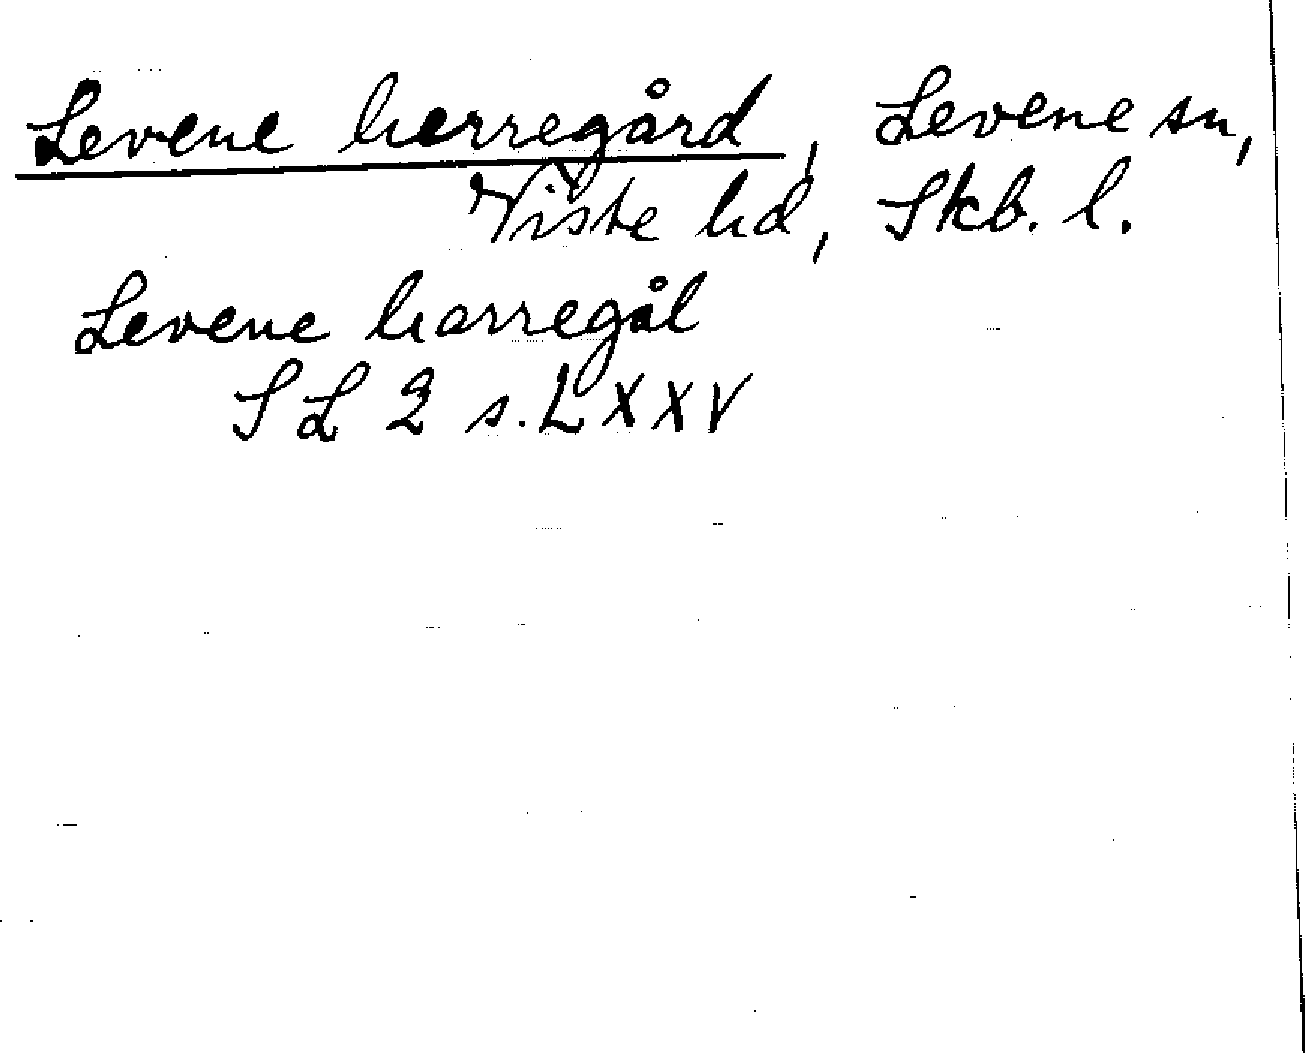 Levene herregård, Levene sn,
Viste hd, Skb. l.
Levene harregål
SL 2 s. LXXV